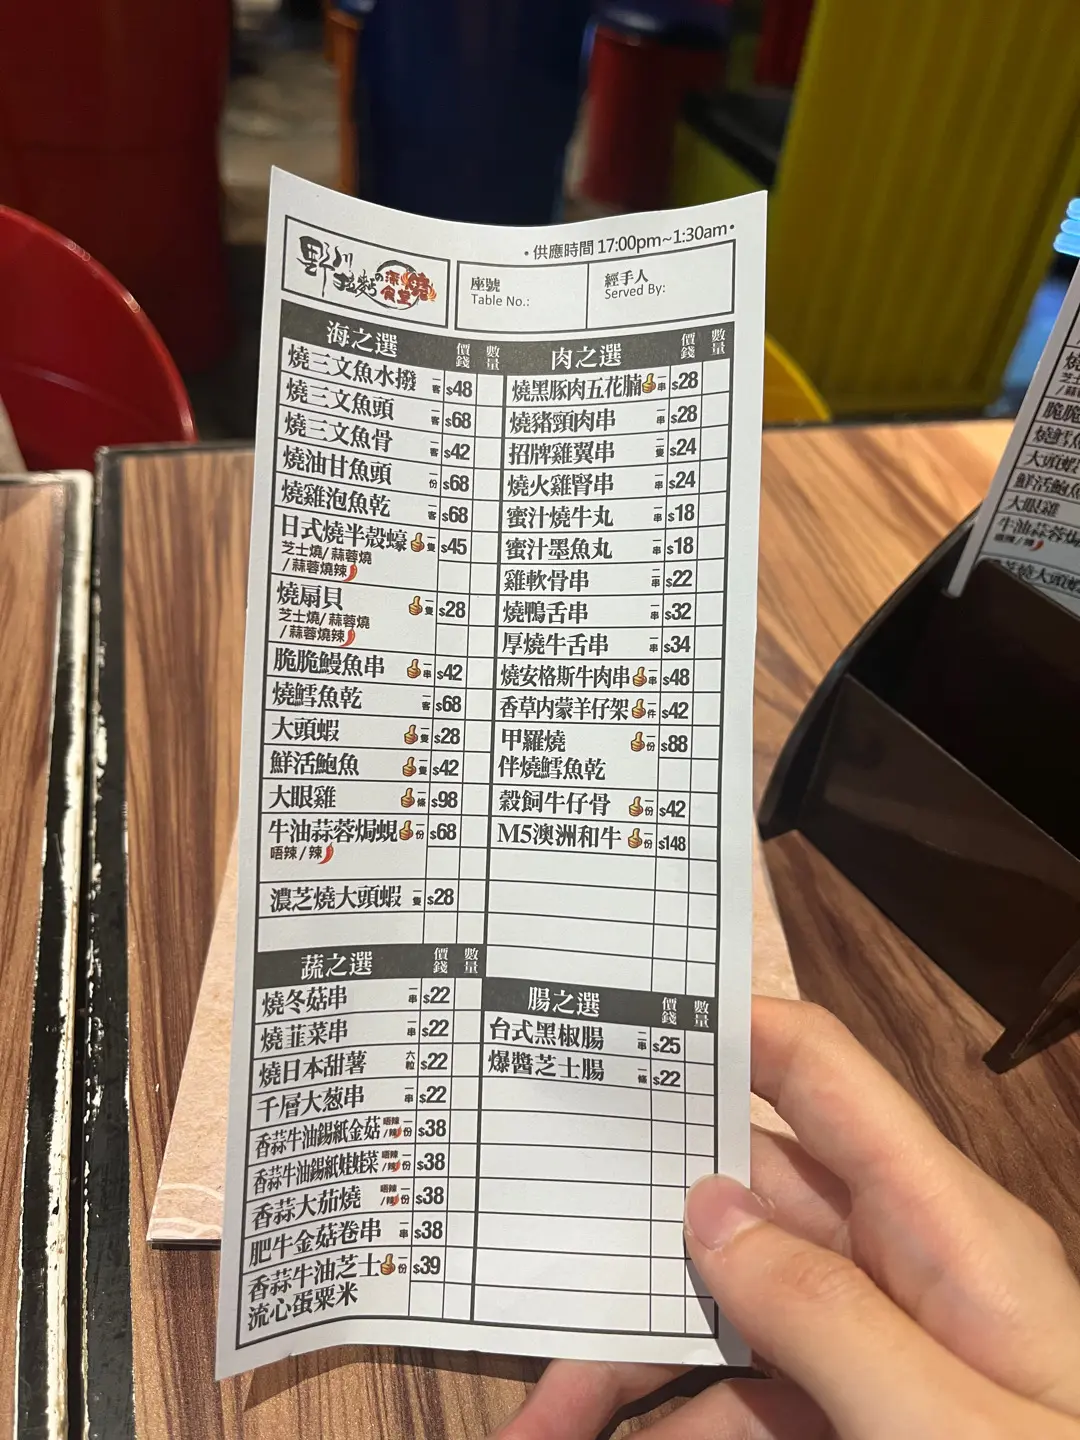 •供應時間 17:00pm~1:30am•
野川
拉麵の深夜食堂 燒
座號
Table No.:
經手人
Served By:
海之選 價錢 數量
燒三文魚水撥 一客 $48
燒三文魚頭 一客 $68
燒三文魚骨 一客 $42
燒油甘魚頭 一份 $68
燒雞泡魚乾 一客 $68
日式燒半殼蠔 一隻 $45
芝士燒/蒜蓉燒
/蒜蓉燒辣
燒扇貝 一隻 $28
芝士燒/蒜蓉燒
/蒜蓉燒辣
脆脆鰻魚串 一串 $42
燒鱈魚乾 一客 $68
大頭蝦 一隻 $28
鮮活鮑魚 一隻 $42
大眼雞 一條 $98
牛油蒜蓉焗蜆 一份 $68
唔辣/辣
濃芝燒大頭蝦 一隻 $28
蔬之選 價錢 數量
燒冬菇串 一串 $22
燒韮菜串 一串 $22
燒日本甜薯 六粒 $22
千層大葱串 一串 $22
香蒜牛油錫紙金菇 唔辣/辣 一份 $38
香蒜牛油錫紙娃娃菜 唔辣/辣 一份 $38
香蒜大茄燒 唔辣/辣 一份 $38
肥牛金菇卷串 一串 $38
香蒜牛油芝士 一份 $39
流心蛋粟米
肉之選 價錢 數量
燒黑豚肉五花腩 一串 $28
燒豬頸肉串 一串 $28
招牌雞翼串 二隻 $24
燒火雞腎串 一串 $24
蜜汁燒牛丸 一串 $18
蜜汁墨魚丸 一串 $18
雞軟骨串 二串 $22
燒鴨舌串 一串 $32
厚燒牛舌串 一串 $34
燒安格斯牛肉串 一串 $48
香草内蒙羊仔架 一件 $42
甲羅燒 一份 $88
伴燒鱈魚乾
穀飼牛仔骨 一份 $42
M5澳洲和牛 一份 $148
腸之選 價錢 數量
台式黑椒腸 二串 $25
爆醬芝士腸 一條 $22
燒
芝士
/蒜蓉
脆脆
燒鱈魚
大頭蝦
鮮活鮑魚
大眼雞
牛油蒜蓉焗
唔辣/辣
濃芝燒大頭蝦